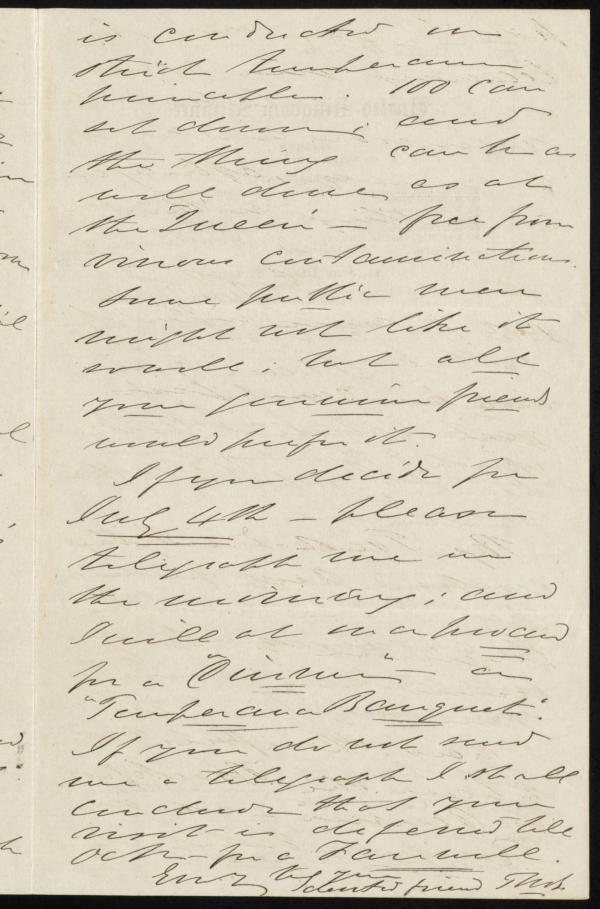 is conducted on
strict temperance
principles. 100 can
sit down; and
the thing can be as
well done as at
the Queen's — free from
vinous contaminations.
Some public men
might not like it
so well; but all
your genuine friends
would prefer it.
If you decide for
July 4th — please
telegraph me in
the morning; and
I will at once
for a "Dinner" — or
"Temperance Banquet".
If you do not send
me a telegraph I shall
conclude that your
visit is deferred till
Octr. for a Farewell.
friend